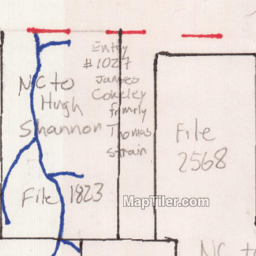 NC to
Hugh
Shannon
File 1823
Entry
#1027
James
Cokeley
frmrly
Thomas
strain
File
2568
MapTiler.com
NC to